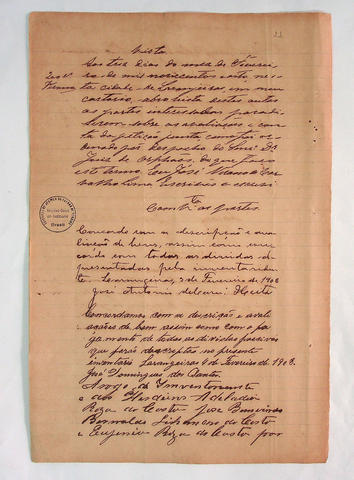 Vista
Aos tres dias do mez de Feverei-
ro de mil novecentos e oito, nes-
ta cidade de Larangeiras em meu
cartorio, abro vista destes autos
as partes interessadas para di-
zerem sobre as avaliações e con-
ta da petição junta como foi or-
denado por despacho do Snr. Dr.
Juiz de Orphãos, do que faço
este termo. Eu José
Escrivão o escrevi
Com Vta as partes
Concordo com a descripção e ava-
liação de bens, assim como con-
cordo com todas as dividas a-
presentadas pela inventarian-
te. Larangeiras, 3 de Fevereiro de 1908
José Antonio
Concordamos com a descrição e avali-
ações de bem assim como com o pa-
gamento de todas as dividas passivas
que forão descriptas no presente
inventario Larangeiras 6 de Fevereiro de 1908.
José Domingues dos Santos
A rogo da Inventariante
e dos Herdeiros
Roza do Couto José
do Couto
e Eugenio Roza do Couto por